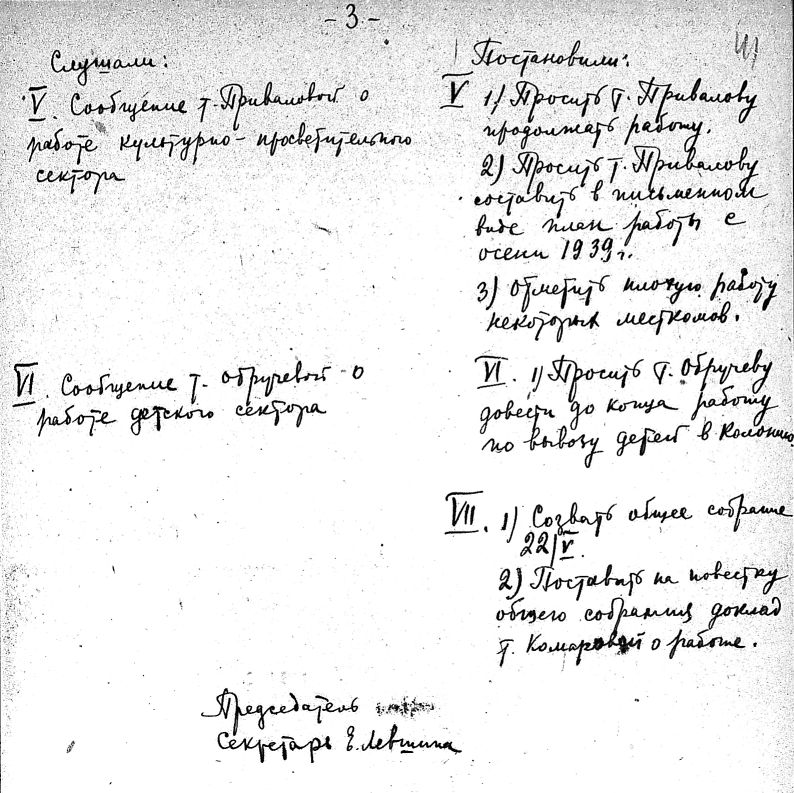 - 3 -
41
Слушали:
V. Сообщение т. Приваловой о
работе культурно-просветительного
сектора
Постановили:
V 1) Просить т. Привалову
продолжать работу.
2) Просить т. Привалову
составить в письменном
виде план работы с
осени 1939 г.
3) Отметить плохую работу
некоторых месткомов.
VI. Сообщение т. Обручевой о
работе детского сектора
VI. 1) Просить т. Обручеву
довести до конца работу
по вывозу детей в колонию
VII. 1) Созвать общее собрание
22/V.
2) Поставить на повестку
общего собрания доклад
т. Комаровой о работе.
Председатель
Секретарь Е. Левшина